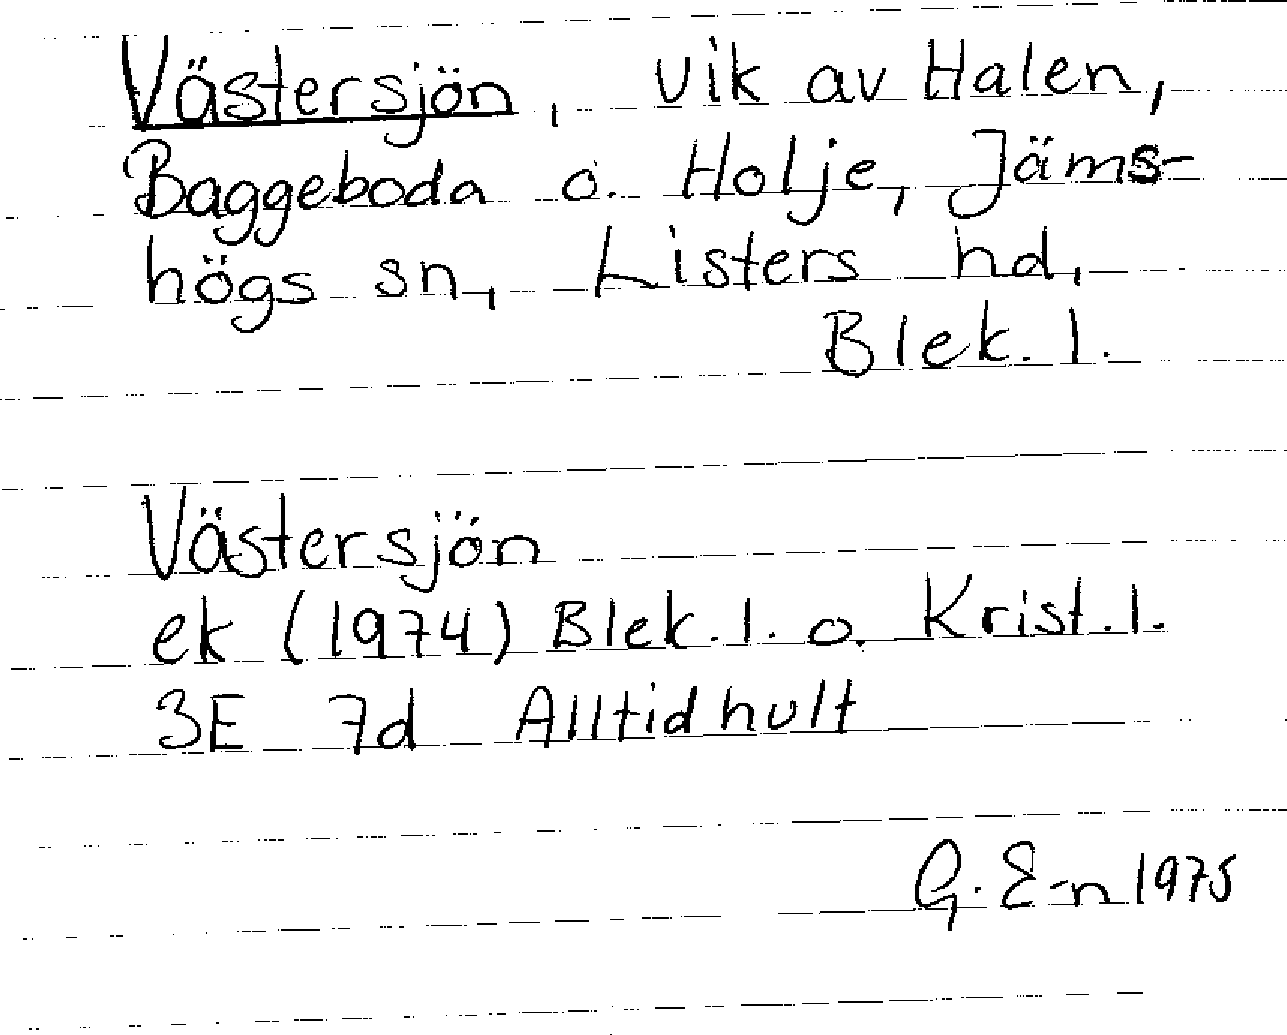 Västersjön, vik av Halen,
Baggeboda o. Holje, Jäms-
högs sn, Listers hd,
Blek. l.
Västersjön
ek (1974) Blek. l. o. Krist. l.
3E 7d Alltidhult
G. E-n 1975